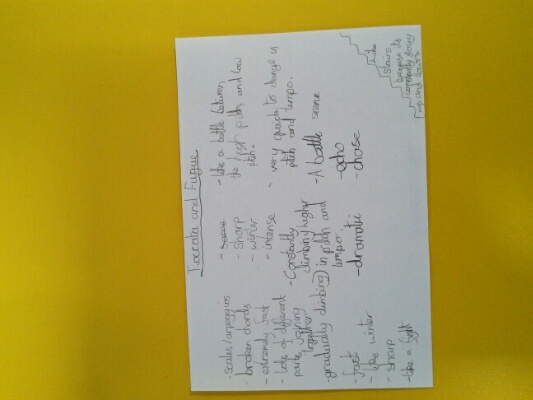 Toccata and Fugue
- scales/arpeggios
- broken chords
- extremely fast
- lots of different
parts joining
together
- gradually climbing
- fast
- like winter
- sharp
- like a fight
- sharp
- winter
- intense
- Constantly
climbing higher
in pitch and
tempo.
- dramatic
- like a battle between
the high pitch and low
pitch.
- very quick to change in
pitch and tempo.
- A battle scene
- echo
- chase
like
stairs
because its
constantly going
up and down